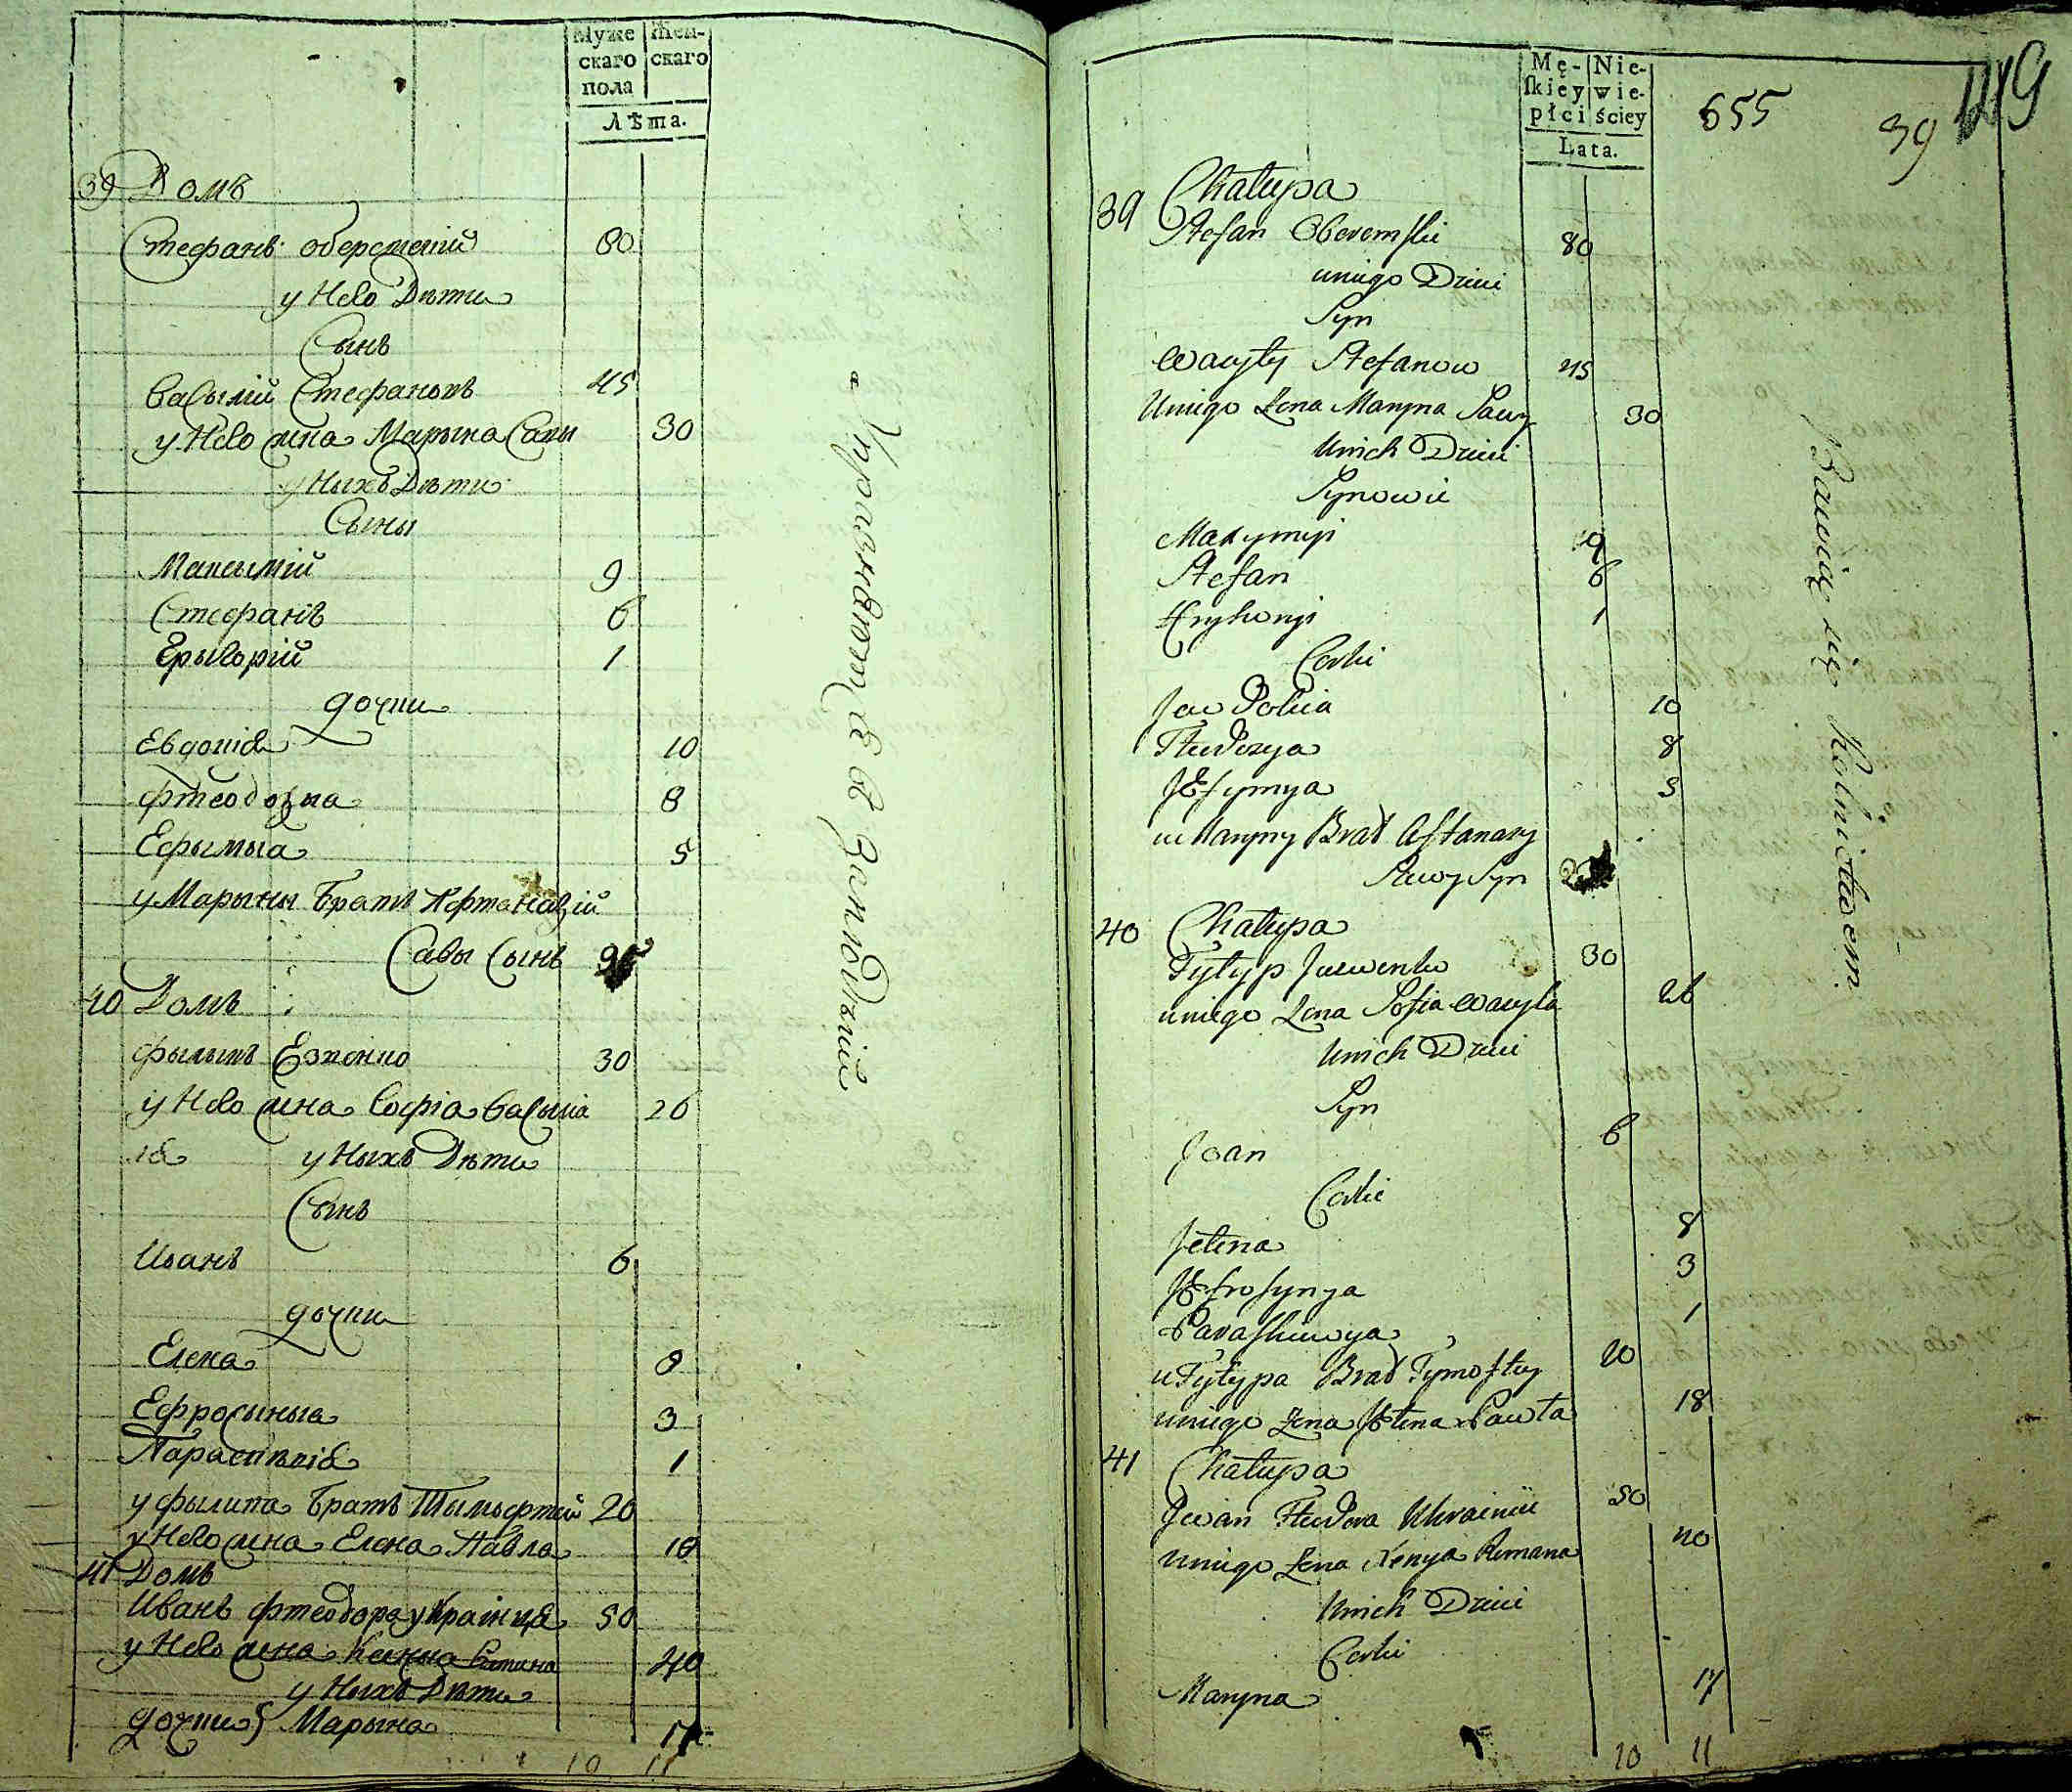 Муже
скаго
пола
Жен-
скаго
Лѣта.
39 Домъ
Стефанъ оберемский 80
у Него Дѣти
Сынъ
Васылій Стефановъ 45
у Него жена Марына Савы 30
у Ныхъ Дѣти
Сыны
Максымій 9
Стефанъ 6
Грыгорій 1
дочки
Евдокія 10
Фтеодозыа 8
Ефымыа 5
у Марыны Братъ Афтаназій
Савы Сынъ
40 Домъ
Фылыпъ Езженко 30
у Него жена Софіа Васыліа 26
у Ныхъ Дѣти
Сынъ
Иванъ 6
дочки
Елена 8
Ефросыныа 3
Параскевія 1
у Фылипа Братъ Тымофтей 20
у Него жена Елена Павла 18
41 Домъ
Иванъ Фтеодора украінця 50
у Него жена Ксеныа 40
у Ныхъ Дѣти
дочки Марына 17
10 11
Упражняются въ Земледѣліи
Mę-
skiey
płci
Nie-
wie-
ściey
Lata.
655
39
119
39 Chałupa
Stefan Oberemski 80
uniego Dzieci
Syn
Wasyly Stefanow 45
Uniego Zona Maryna Sawy 30
Unich Dzieci
Synowie
Maxymiji 9
Stefan 6
Hryhoryi 1
Corki
Jew Dokia 10
Fteodozya 8
JEfymya 5
u Maryny Brat Aftanazy
Sawy Syn
40 Chałupa
Fylyp Jezwenko 30
uniego Zona Sofia Wasyla 26
Unich Dzieci
Syn
Joan 6
Corki
Jelena 8
JEfrosynya 3
Paraskiewya 1
u Fylypa Brat Tymoftey 20
uniego Zona JElena Pawła 18
41 Chałupa
Jwan Fteodora Ukrainiec 50
uniego Zona Xenya Romana 40
Unich Dzieci
Corki
Maryna 17
10 11
Bawią się Rolnictwem